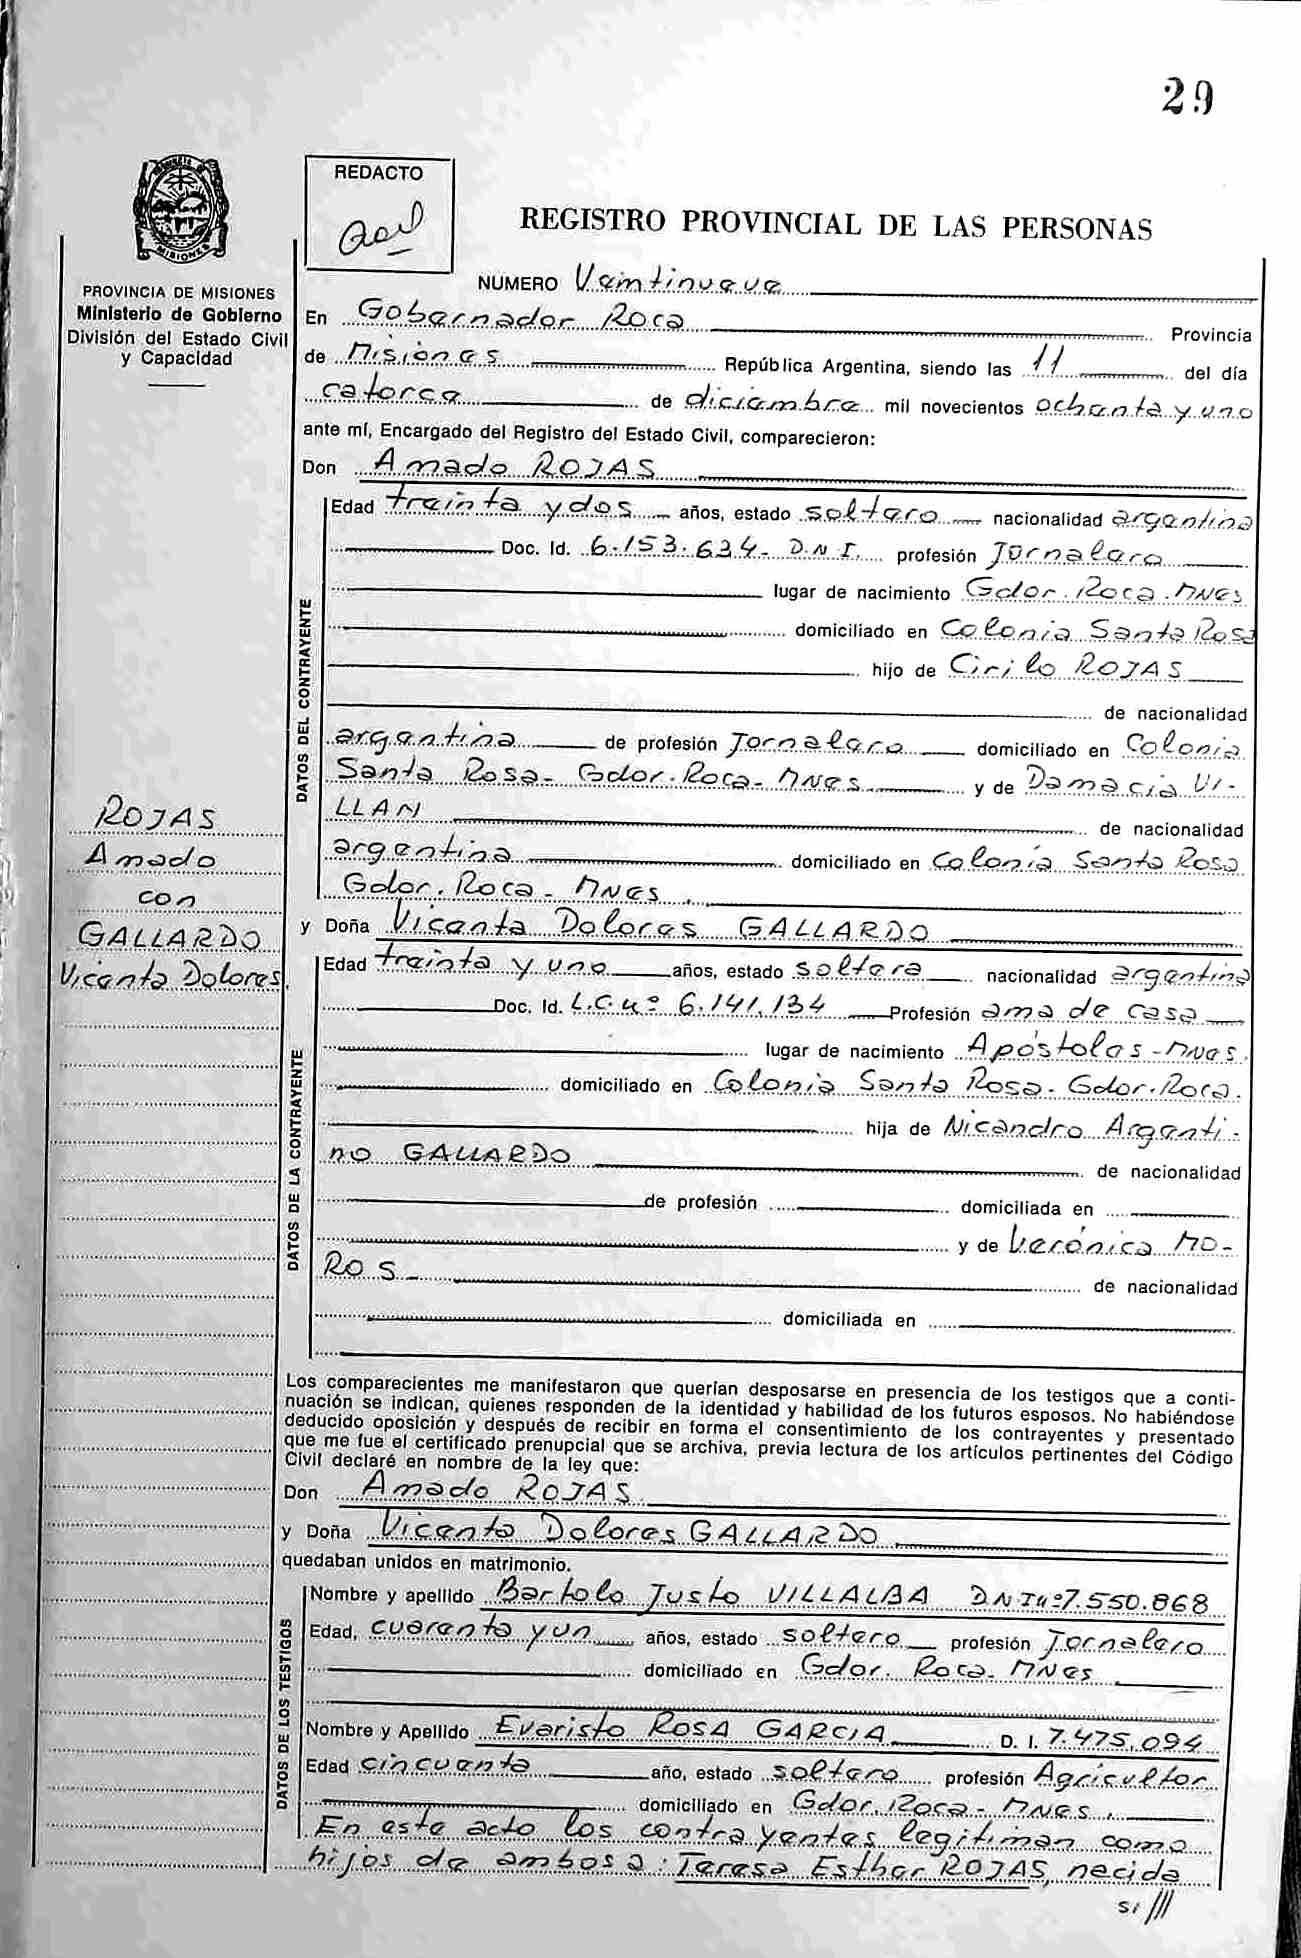 29
REDACTO
REGISTRO PROVINCIAL DE LAS PERSONAS
PROVINCIA DE MISIONES
Ministerio de Gobierno
División del Estado Civil
y Capacidad
NUMERO Veintinueve
En Gobernador Roca Provincia
de Misiones República Argentina, siendo las 11 del día
catorce de diciembre mil novecientos ochenta y uno
ante mí, Encargado del Registro del Estado Civil, comparecieron:
Don Amado ROJAS
DATOS DEL CONTRAYENTE
Edad treinta y dos años, estado soltero nacionalidad argentina
Doc. Id. 6.153.634- D.N.I. profesión Jornalero
lugar de nacimiento Gdor. Roca. MNes
domiciliado en Colonia Santa Rosa
hijo de Cirilo ROJAS
de nacionalidad
argentina de profesión Jornalero domiciliado en Colonia
Santa Rosa- Gdor. Roca- MNes y de Damacia VI-
LLAN de nacionalidad
argentina domiciliado en Colonia Santa Rosa
Gdor. Roca - MNes
ROJAS
Amado
con
GALLARDO
Vicenta Dolores.
y Doña Vicenta Dolores GALLARDO
DATOS DE LA CONTRAYENTE
Edad treinta y uno años, estado soltera nacionalidad argentina
Doc. Id. L.C. nº 6.141.134 Profesión ama de casa
lugar de nacimiento Apóstoles -MNes.
domiciliado en Colonia Santa Rosa- Gdor. Roca.
hija de Nicandro Argenti-
no GALLARDO de nacionalidad
de profesión domiciliada en
y de Verónica MO-
ROS - de nacionalidad
domiciliada en
Los comparecientes me manifestaron que querían desposarse en presencia de los testigos que a conti-
nuación se indican, quienes responden de la identidad y habilidad de los futuros esposos. No habiéndose
deducido oposición y después de recibir en forma el consentimiento de los contrayentes y presentado
que me fue el certificado prenupcial que se archiva, previa lectura de los artículos pertinentes del Código
Civil declaré en nombre de la ley que:
Don Amado ROJAS.
y Doña Vicenta Dolores GALLARDO
quedaban unidos en matrimonio.
DATOS DE LOS TESTIGOS
Nombre y apellido Bartolo Justo VILLALBA DNI nº 7.550.868
Edad, cuarenta y un años, estado soltero profesión Jornalero
domiciliado en Gdor. Roca- MNes
Nombre y Apellido Evaristo ROSA GARCIA D. I. 7.475.094
Edad cincuenta año, estado soltero profesión Agricultor
domiciliado en Gdor. Roca- MNes.
En este acto los contrayentes legitiman como
hijos de ambos a: Teresa Esther ROJAS, necida
si ///